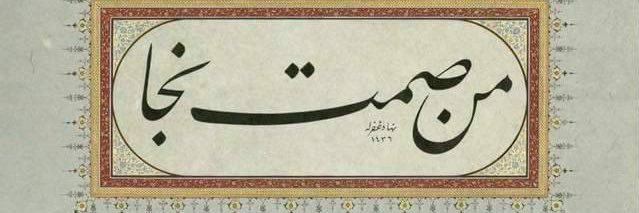 من صمت نجا
نهاد غفر له
١٤٣٦